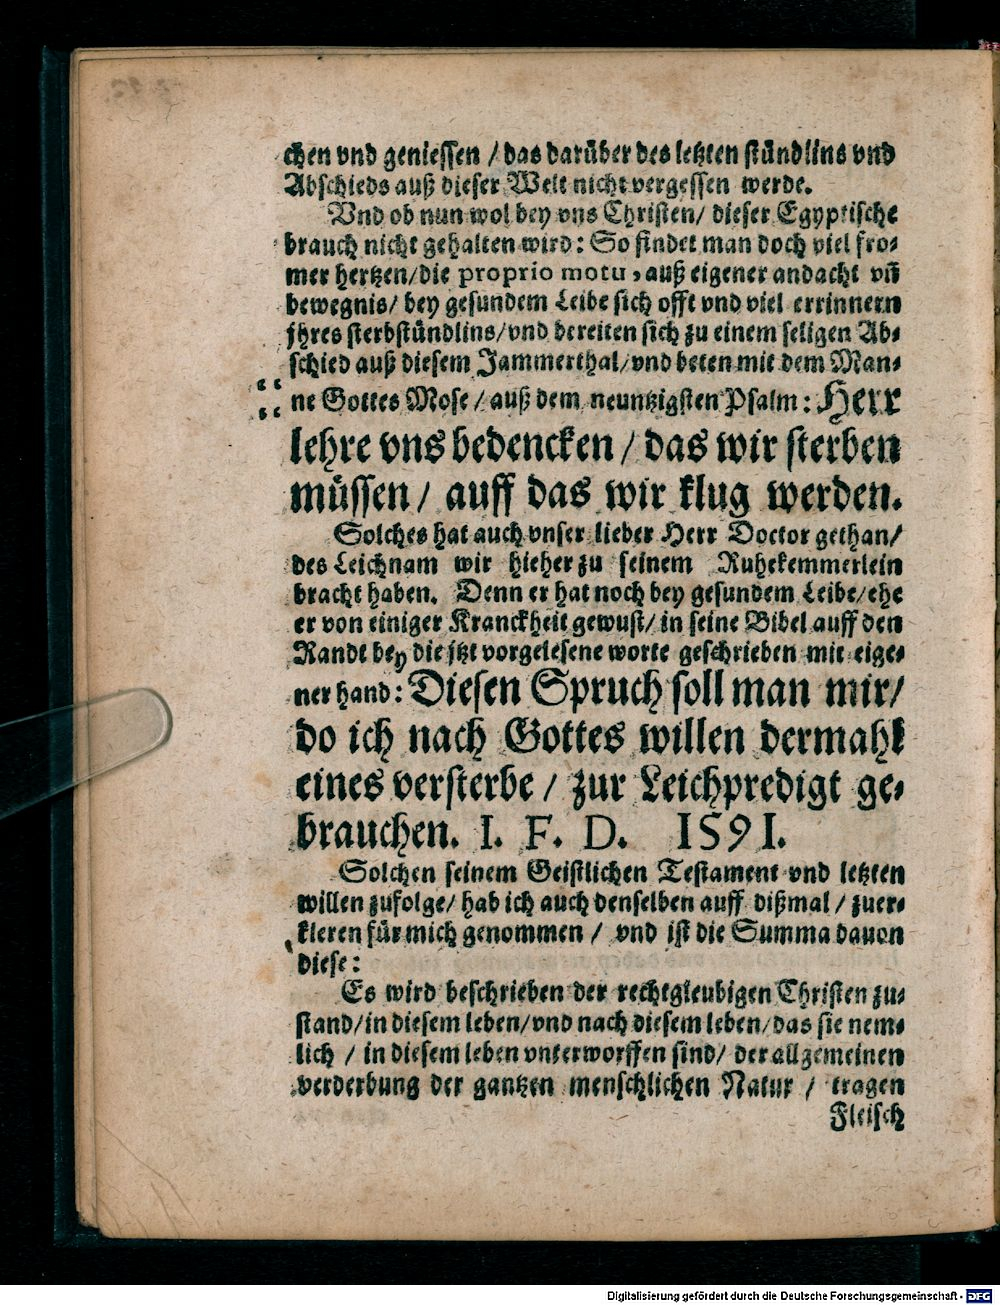 chen vnd geniessen / das darüber des letzten stündlins vnd
Abschieds auß dieser Welt nicht vergessen werde.
Vnd ob nun wol bey vns Christen/ dieser Egyptische
brauch nicht gehalten wird: So findet man doch viel fro-
mer hertzen/die proprio motu, auß eigener andacht vñ
bewegnis/ bey gesundem Leibe sich offt vnd viel errinnern
jhres sterbstündlins/vnd bereiten sich zu einem seligen Ab-
schied auß diesem Jammerthal/vnd beten mit dem Man-
ne Gottes Mose / auß dem neuntzigsten Psalm: Herr
lehre vns bedencken / das wir sterben
müssen / auff das wir klug werden.
Solches hat auch vnser lieber Herr Doctor gethan/
des Leichnam wir hieher zu seinem Ruhekemmerlein
bracht haben. Denn er hat noch bey gesundem Leibe/ehe
er von einiger Kranckheit gewust/ in seine Bibel auff den
Randt bey die jtzt vorgelesene worte geschrieben mit eige-
ner hand: Diesen Spruch soll man mir/
do ich nach Gottes willen dermahl
eines versterbe / zur Leichpredigt ge-
brauchen. I. F. D. 1591.
Solchen seinem Geistlichen Testament vnd letzten
willen zufolge/ hab ich auch denselben auff dißmal / zuer-
kleren für mich genommen / vnd ist die Summa dauon
diese:
Es wird beschrieben der rechtgleubigen Christen zu-
stand/in diesem leben/vnd nach diesem leben/das sie nem-
lich / in diesem leben vnterworffen sind/ der allgemeinen
verderbung der gantzen menschlichen Natur / tragen
Fleisch
Digitalisierung gefördert durch die Deutsche Forschungsgemeinschaft - DFG